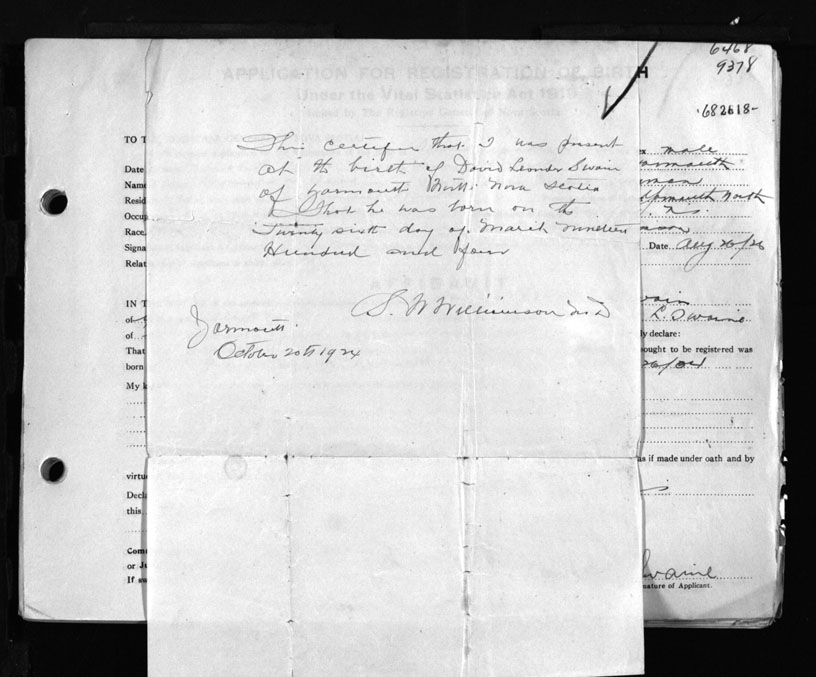 6468
9378
682618-
APPLICATION FOR REGISTRATION OF BIRTH
Under the Vital Statistics Act 1919
This certifies that I was present
at the birth of David Leander Swain
of Yarmouth North Nova Scotia
& that he was born on the
Twenty sixth day of March nineteen
Hundred and four
S. W Williamson M D
Yarmouth.
October 20th 1924
TO T
Date
Name
Resid
Occup
Race.
Signa
Relat
male
Yarmouth
North
N.S.
Date Aug 26/26
IN T
of
of
That
born
My k
L. Swaine
ly declare:
sought to be registered was
26/04
as if made under oath and by
virtu
Decla
this
Com
or Ju
If sw
Swaine
nature of Applicant.